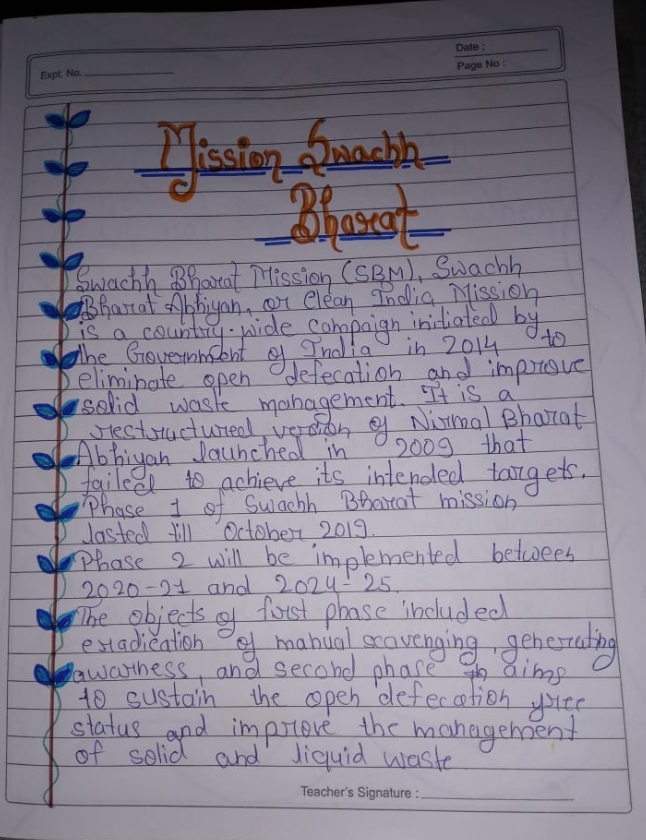 Expt. No.
Date :
Page No :
Mission Swachh
Bharat
Swachh Bharat Mission (SBM), Swachh
Bharat Abhiyan, or Clean India Mission
is a country-wide campaign initiated by
the Government of India in 2014 to
eliminate open defecation and improve
solid waste management. It is a
restructured version of Nirmal Bharat
Abhiyan launched in 2009 that
failed to achieve its intended targets.
Phase 1 of Swachh Bharat mission
lasted till October 2019.
Phase 2 will be implemented between
2020-21 and 2024-25.
The objects of first phase included
eradication of manual scavenging, generating
awarness, and second phase aims
to sustain the open defecation free
status and improve the management
of solid and liquid waste
Teacher's Signature :